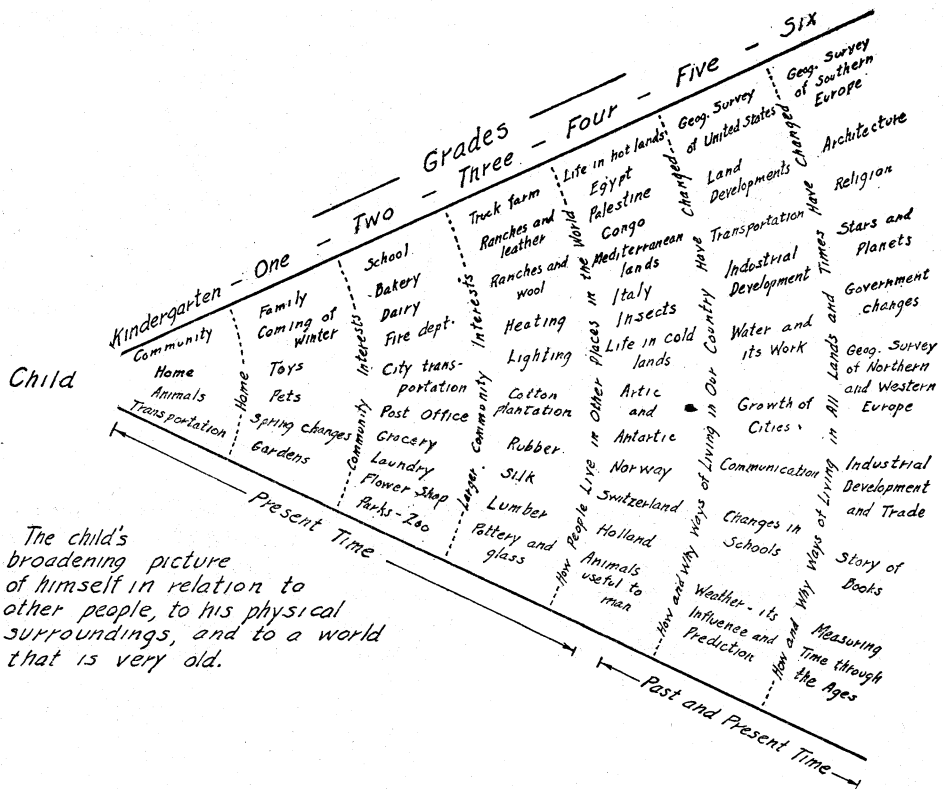 Grades
Kindergarten - One - Two - Three - Four - Five - Six
Child
Community
Home
Animals
Transportation
Home
Family
Coming of
winter
Toys
Pets
Spring changes
Gardens
Community Interests
School
Bakery
Dairy
Fire dept.
City trans-
portation
Post Office
Grocery
Laundry
Flower Shop
Parks - Zoo
Larger Community Interests
Truck farm
Ranches and
leather
Ranches and
wool
Heating
Lighting
Cotton
plantation
Rubber
Silk
Lumber
Pottery and
glass
How People Live in Other Places in the World
Life in hot lands
Egypt
Palestine
Congo
Mediterranean
lands
Italy
Insects
Life in cold
lands
Artic
and
Antartic
Norway
Switzerland
Holland
Animals
useful to
man
How and Why Ways of Living in Our Country Have Changed
Geog. Survey
of United States
Land
Developments
Transportation
Industrial
Development
Water and
its Work
Growth of
Cities.
Communication
Changes in
Schools
Weather - its
Influence and
Prediction
How and Why Ways of Living in All Lands and Times Have Changed
Geog. Survey
of Southern
Europe
Architecture
Religion
Stars and
Planets
Government
changes
Geog. Survey
of Northern
and Western
Europe
Industrial
Development
and Trade
Story of
Books
Measuring
Time through
the Ages
Present Time
Past and Present Time
The child's
broadening picture
of himself in relation to
other people, to his physical
surroundings, and to a world
that is very old.